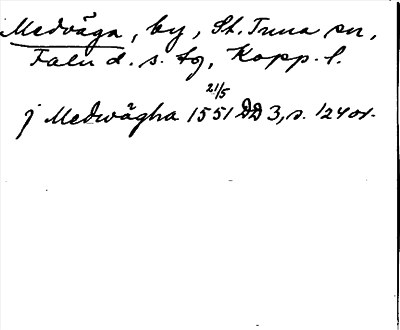 Medväga, by, St. Tuna sn,
Falu d. s. tg, Kopp. l.
21/5
j Medwägha 1551 DD 3, s. 124 or.